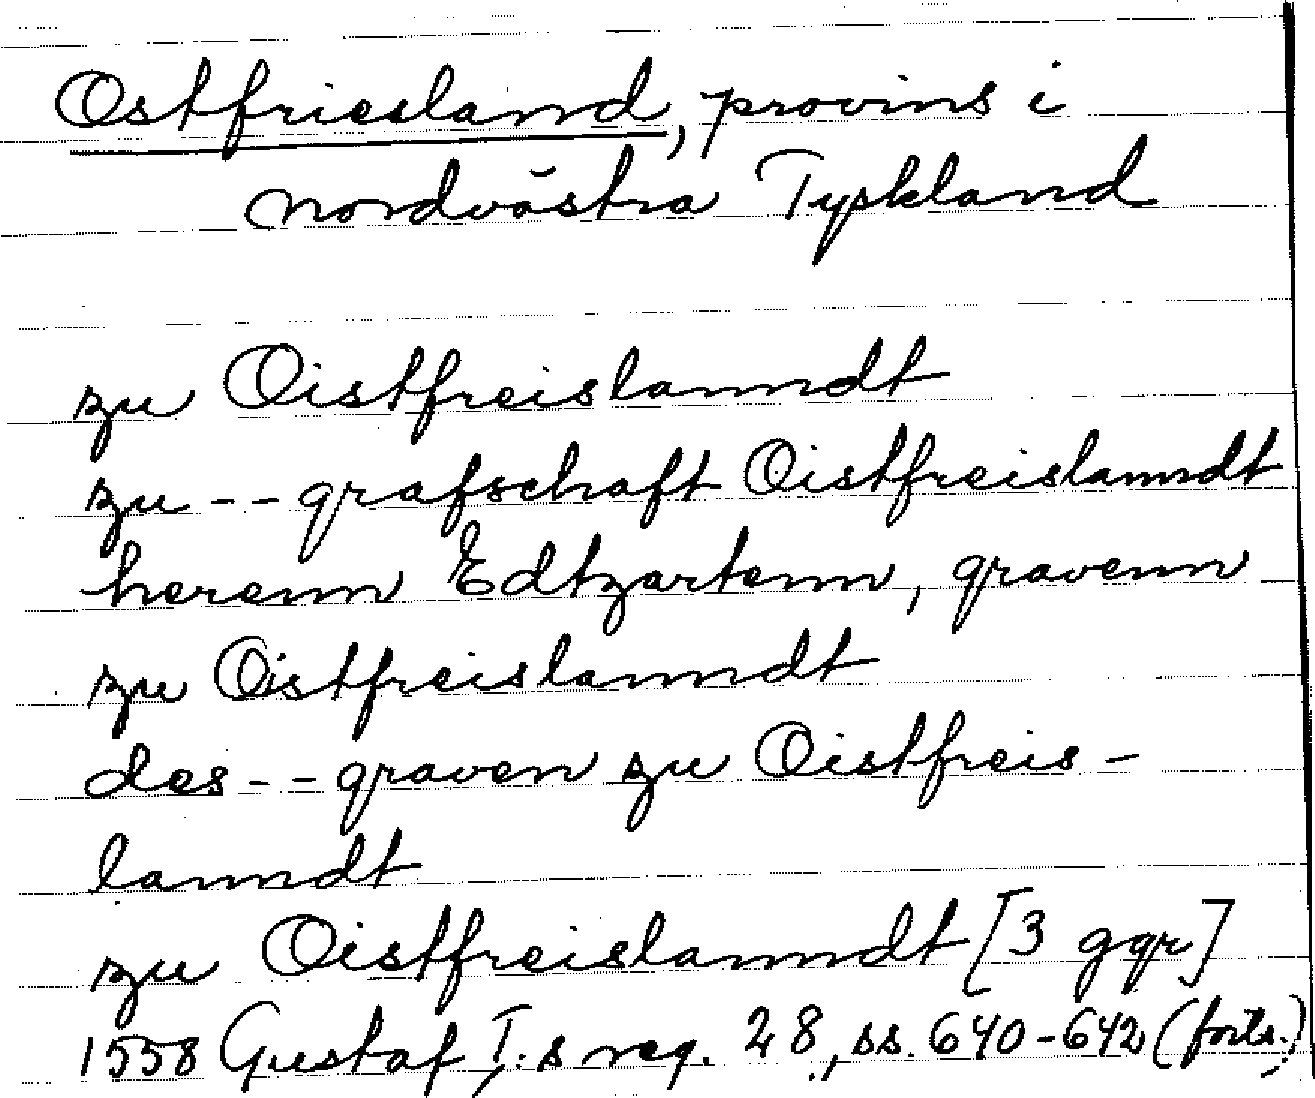 Ostfriesland, provins i
nordvästra Tyskland
zu Oistfreislanndt
zu -- grafschaft Oistfreislanndt
herenn Edtzartenn, gravenn
zu Oistfreislanndt
des -- graven zu Oistfreis-
lanndt
zu Oistfreislanndt [3 ggr]
1558 Gustaf I:s reg. 28, ss. 640-642 (forts.)